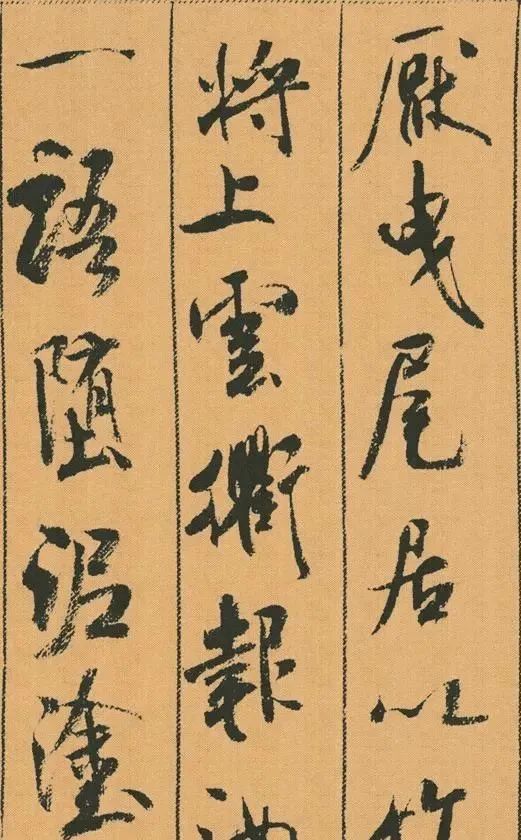 厭曳尾居以
將上雲衢報
一語墮泥塗